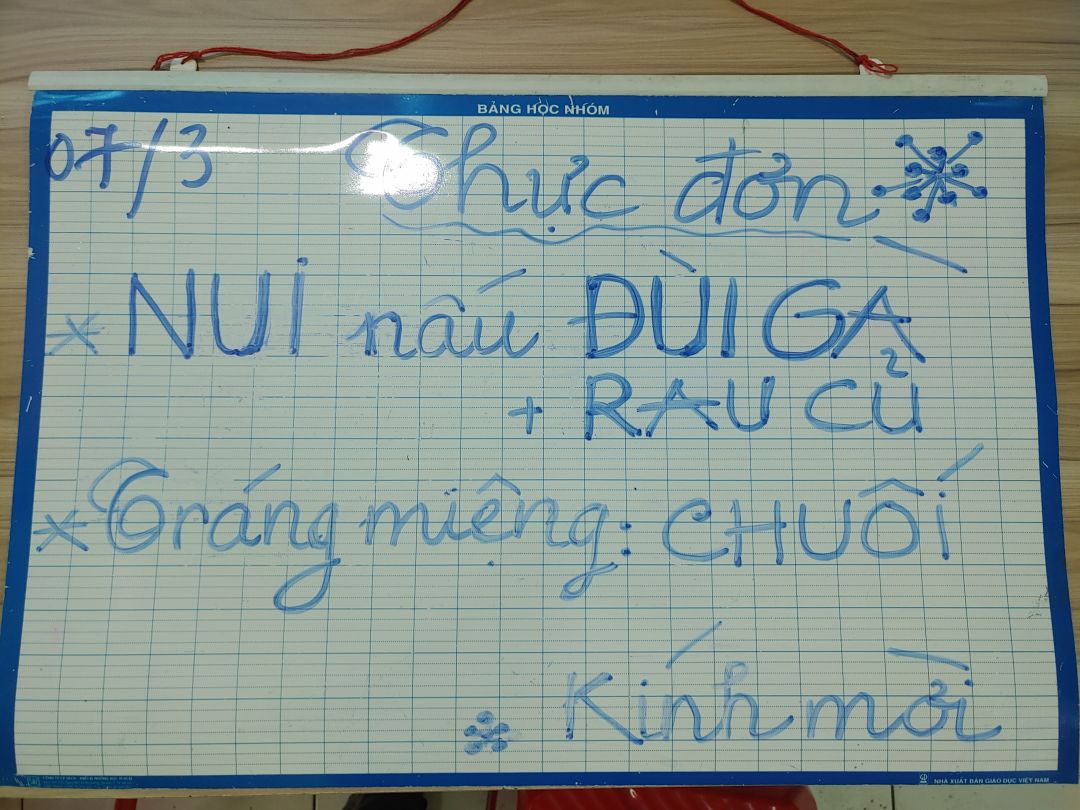 BẢNG HỌC NHÓM
07/3 Thực đơn
* NUI nấu ĐÙI GÀ
+ RAU CỦ
* Tráng miệng: CHUỐI
Kính mời
NHÀ XUẤT BẢN GIÁO DỤC VIỆT NAM